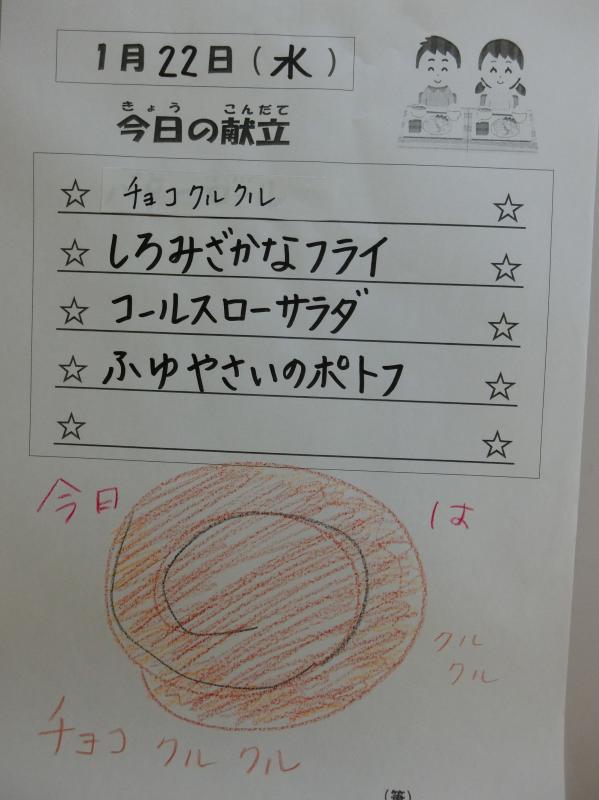 1月22日(水)
きょう こんだて
今日の献立
☆ チョコクルクル ☆
☆ しろみざかなフライ ☆
☆ コールスローサラダ ☆
☆ ふゆやさいのポトフ ☆
☆ ☆
今日 は
クル
クル
チョコ クル クル